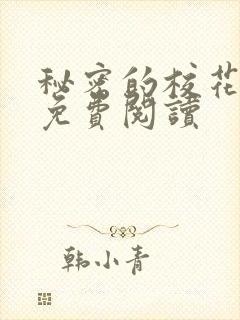 秘密的校花
免費閱讀
韩小青